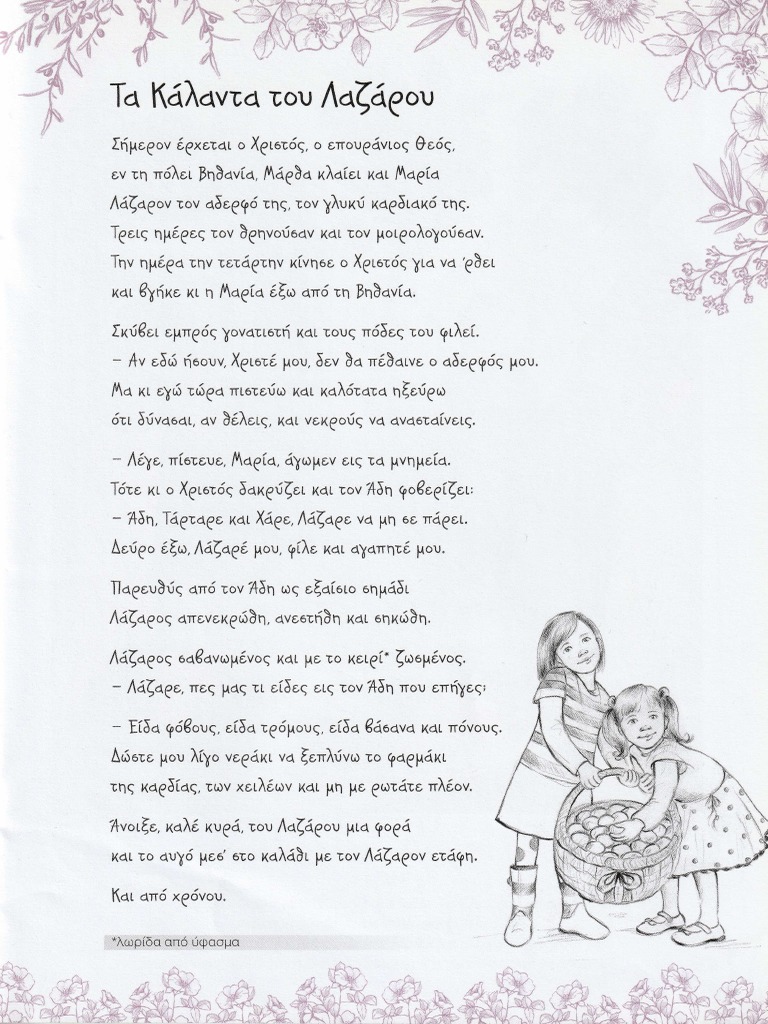 Τα Κάλαντα του Λαζάρου
Σήμερον έρχεται ο Χριστός, ο επουράνιος Θεός,
εν τη πόλει Βηθανία, Μάρθα κλαίει και Μαρία
Λάζαρον τον αδερφό της, τον γλυκύ καρδιακό της.
Τρεις ημέρες τον θρηνούσαν και τον μοιρολογούσαν.
Την ημέρα την τετάρτην κίνησε ο Χριστός για να 'ρθει
και βγήκε κι η Μαρία έξω από τη Βηθανία.
Σκύβει εμπρός γονατιστή και τους πόδες του φιλεί.
– Αν εδώ ήσουν, Χριστέ μου, δεν θα πέθαινε ο αδερφός μου.
Μα κι εγώ τώρα πιστεύω και καλότατα ηξεύρω
ότι δύνασαι, αν θέλεις, και νεκρούς να ανασταίνεις.
– Λέγε, πίστευε, Μαρία, άγωμεν εις τα μνημεία.
Τότε κι ο Χριστός δακρύζει και τον Άδη φοβερίζει:
– Άδη, Τάρταρε και Χάρε, Λάζαρε να μη σε πάρει.
Δεύρο έξω, Λάζαρέ μου, φίλε και αγαπητέ μου.
Παρευθύς από τον Άδη ως εξαίσιο σημάδι
Λάζαρος απενεκρώθη, ανεστήθη και σηκώθη.
Λάζαρος σαβανωμένος και με το κειρί* ζωσμένος.
– Λάζαρε, πες μας τι είδες εις τον Άδη που επήγες;
– Είδα φόβους, είδα τρόμους, είδα βάσανα και πόνους.
Δώστε μου λίγο νεράκι να ξεπλύνω το φαρμάκι
της καρδίας, των χειλέων και μη με ρωτάτε πλέον.
Άνοιξε, καλέ κυρά, του Λαζάρου μια φορά
και το αυγό μεσ' στο καλάθι με τον Λάζαρον ετάφη.
Και από χρόνου.
*λωρίδα από ύφασμα